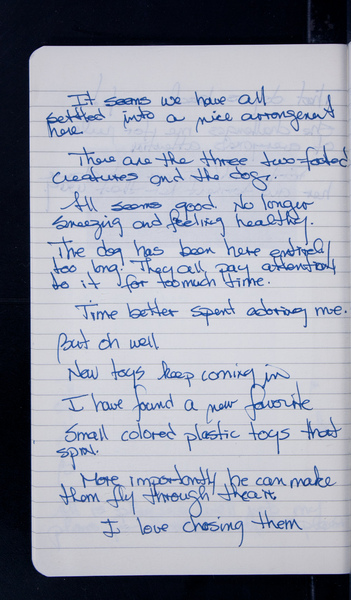 It seems we have all
settled into a nice arrangement
here.
There are the three two-footed
creatures and the dog.
All seems good. No longer
sneezing and feeling healthy.
The dog has been here entirely
too long. They all pay attention
to it for too much time.
Time better spent adoring me.
But oh well
New toys keep coming in
I have found a new favorite
Small colored plastic toys that
spin.
More importantly he can make
them fly through the air.
I love chasing them